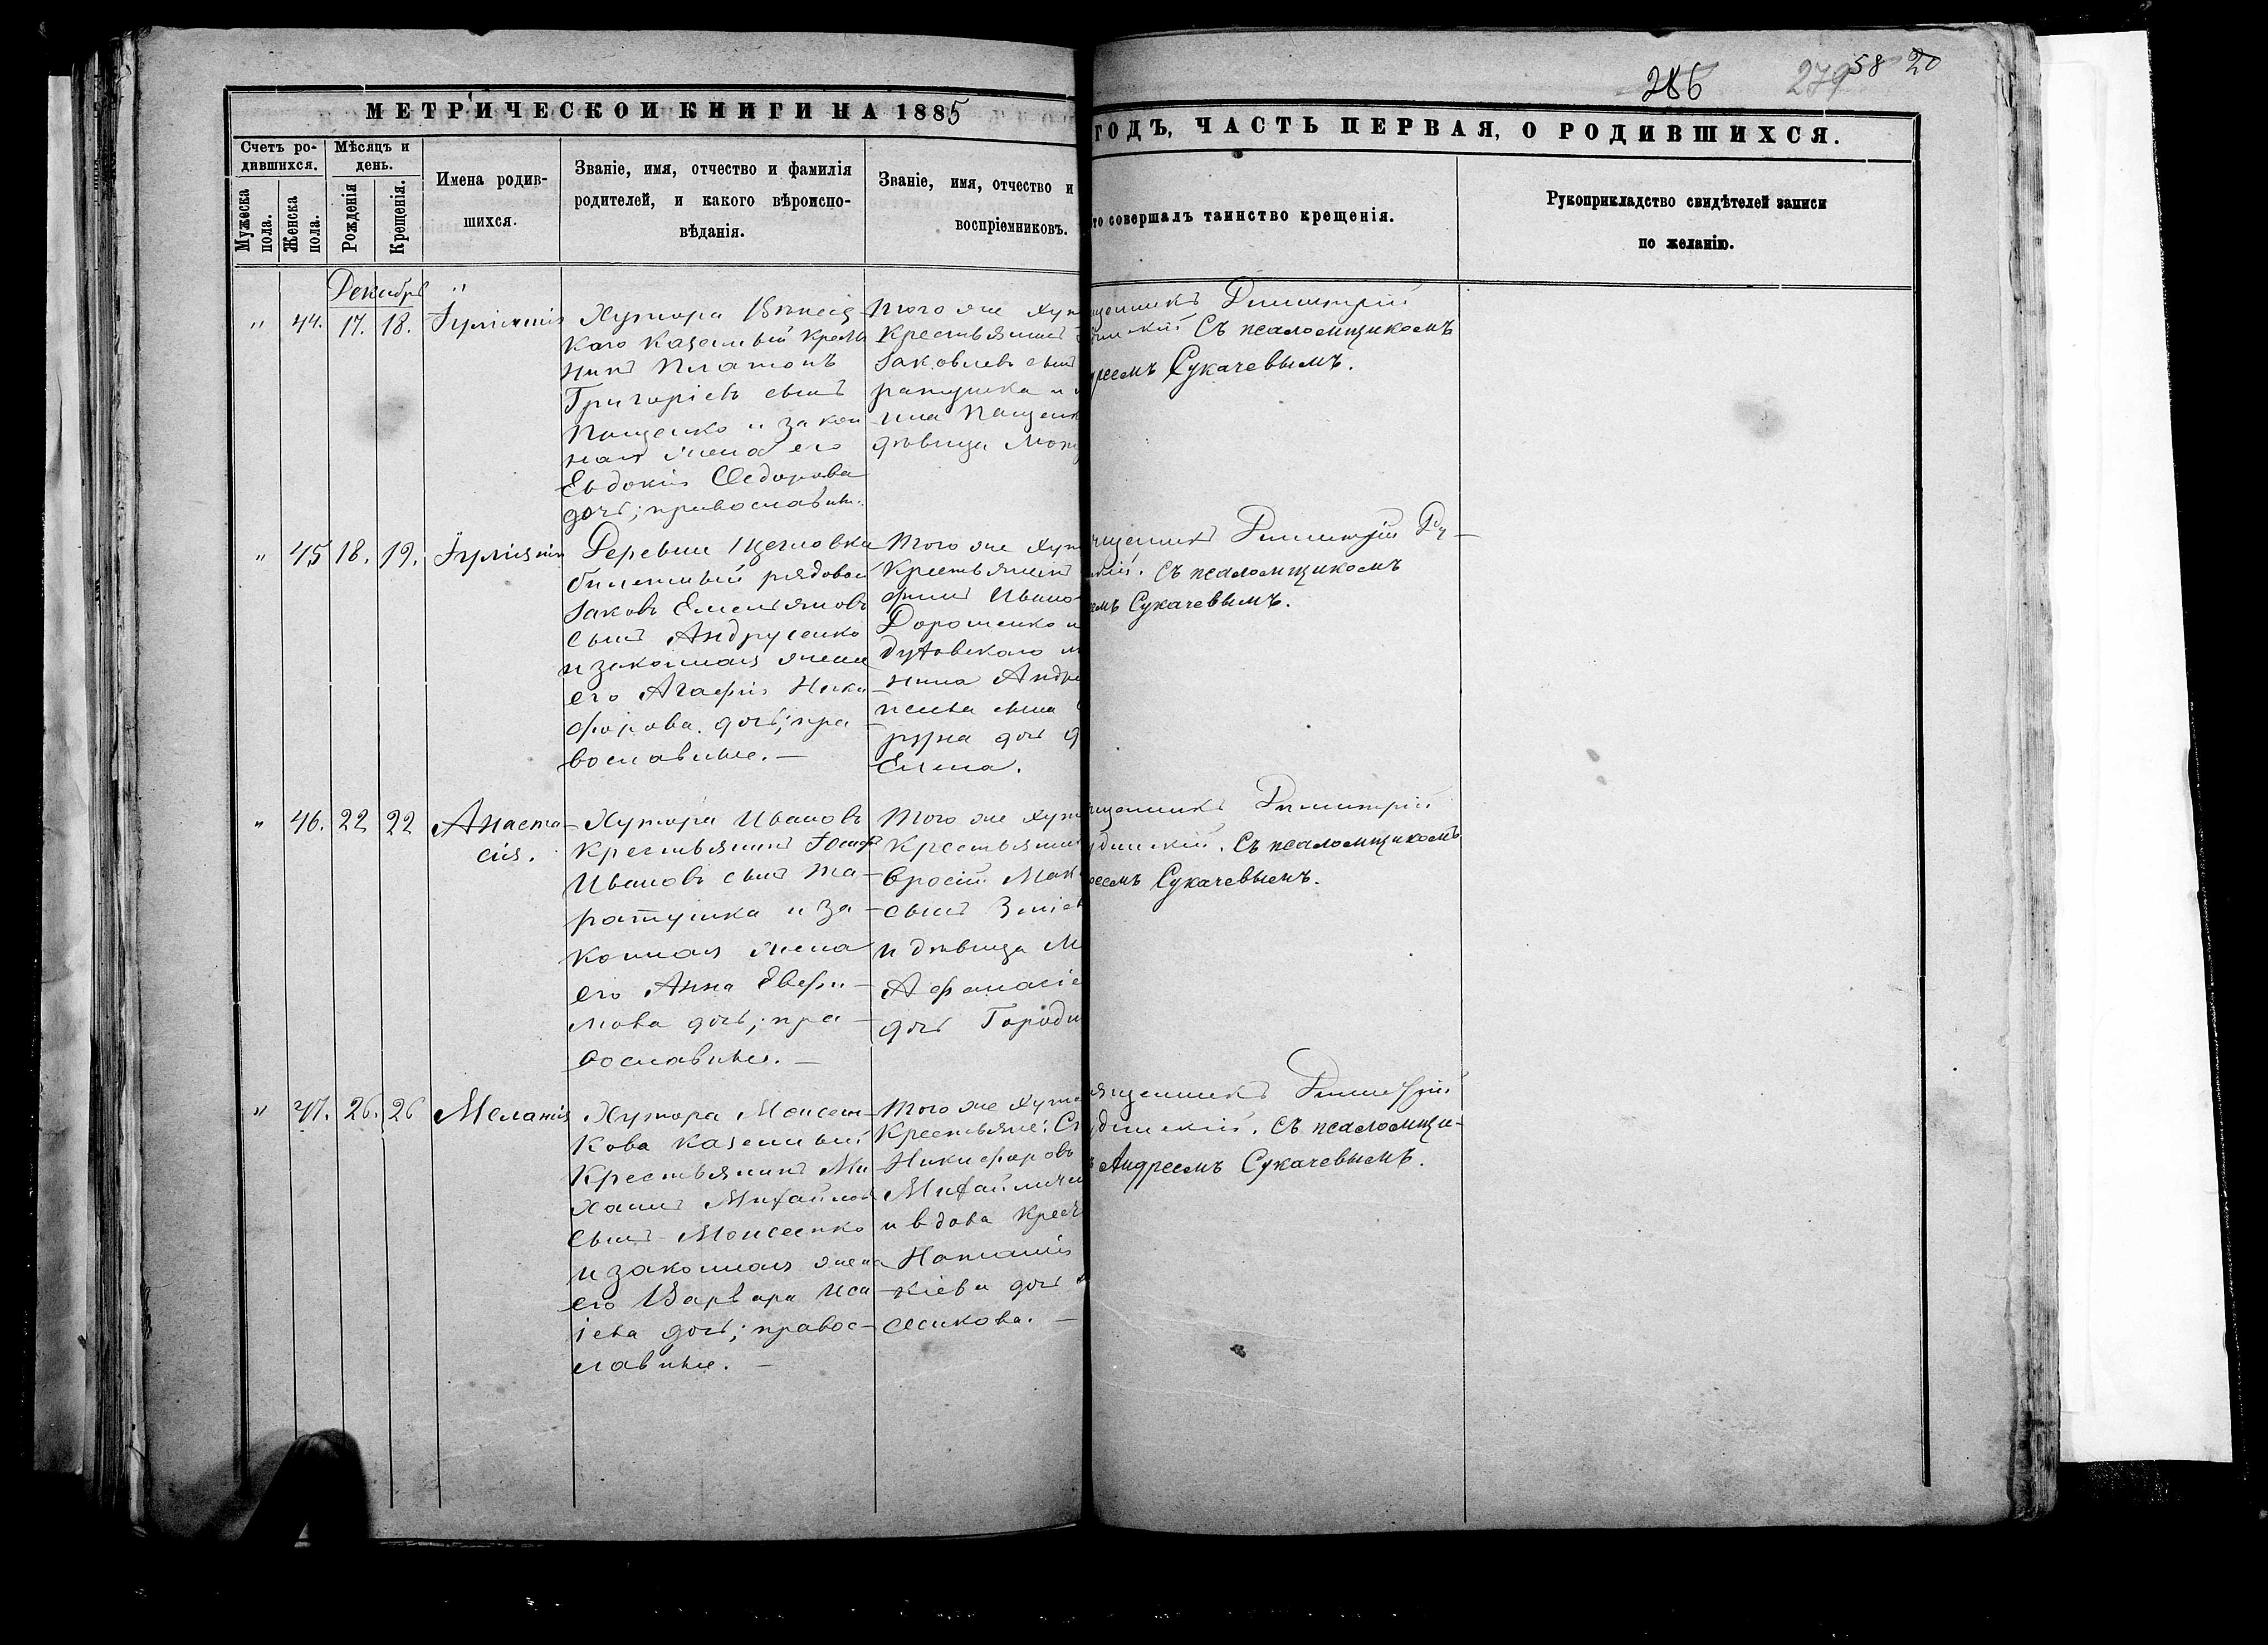 286 279 58 20
МЕТРИЧЕСКОЙ КНИГИ НА 1885
ГОДЪ, ЧАСТЬ ПЕРВАЯ, О РОДИВШИХСЯ.
Счетъ ро-
дившихся.
Мужеска
пола.
Женска
пола.
Мѣсяцъ и
день.
Рожденія
Крещенія.
Имена родив-
шихся.
Званіе, имя, отчество и фамилія
родителей, и какого вѣроиспо-
вѣданія.
Званіе, имя, отчество и
воспріемниковъ.
то совершалъ таинство крещенія.
Рукоприкладство свидѣтелей записи
по желанію.
Декабрь
" 44. 17. 18. Іуліанія
Хутора
каго казенный кресть
нинъ Платонъ
Григорьевъ сынъ
Пащенко и закон
ная жена его
Евдокія Ѳедорова
дочь; православн.
Того же хут
Крестьянинъ
Яковлевъ сынъ
ратушка и
ина Пащенк
дѣвица
щенникъ Димитрій
динскій съ псаломщикомъ
реемъ Сукачевымъ.
" 45 18. 19. Іуліанія
Деревни Щегловки
билетный рядовой
Іаковъ Емельяновъ
сынъ Андрусенко
и законная жена
его Агафія Ники
форова дочь; пра-
вославные. —
Того же хут
Крестьянинъ
фимъ Ивано
Дорошенко и
нина Андре
дочь
Елена.
щенникъ Димитрій Ру-
кій. съ псаломщикомъ
емъ Сукачевымъ.
" 46. 22 22 Анаста-
сія.
Хутора Иванов
крестьянинъ Іосифъ
Ивановъ сынъ Та-
ратушка и за-
конная жена
его Анна Евфи-
мова дочь; пра-
вославные. —
Того же хут
Крестьянин
вросій Мак
сынъ Зміев
и дѣвица М
Афанасіе
дочь Городи
щенникъ Димитрій
динскій. съ псаломщикомъ
реемъ Сукачевымъ.
" 47. 26. 26 Меланія
Хутора Моисеен-
кова казенный
Крестьянинъ Ми
хаилъ Михайловъ
сынъ Моисеенко
и законная жена
его Варвара Иса
іева дочь; правос-
лавные. —
Того же хуто
Крестьяне: Ст
Никифоровъ
Михайличен
и вдова крест
Наталія
кіева дочь
сеикова. —
ященникъ Димитрій
динскій. съ псаломщи-
ъ Андреемъ Сукачевымъ.